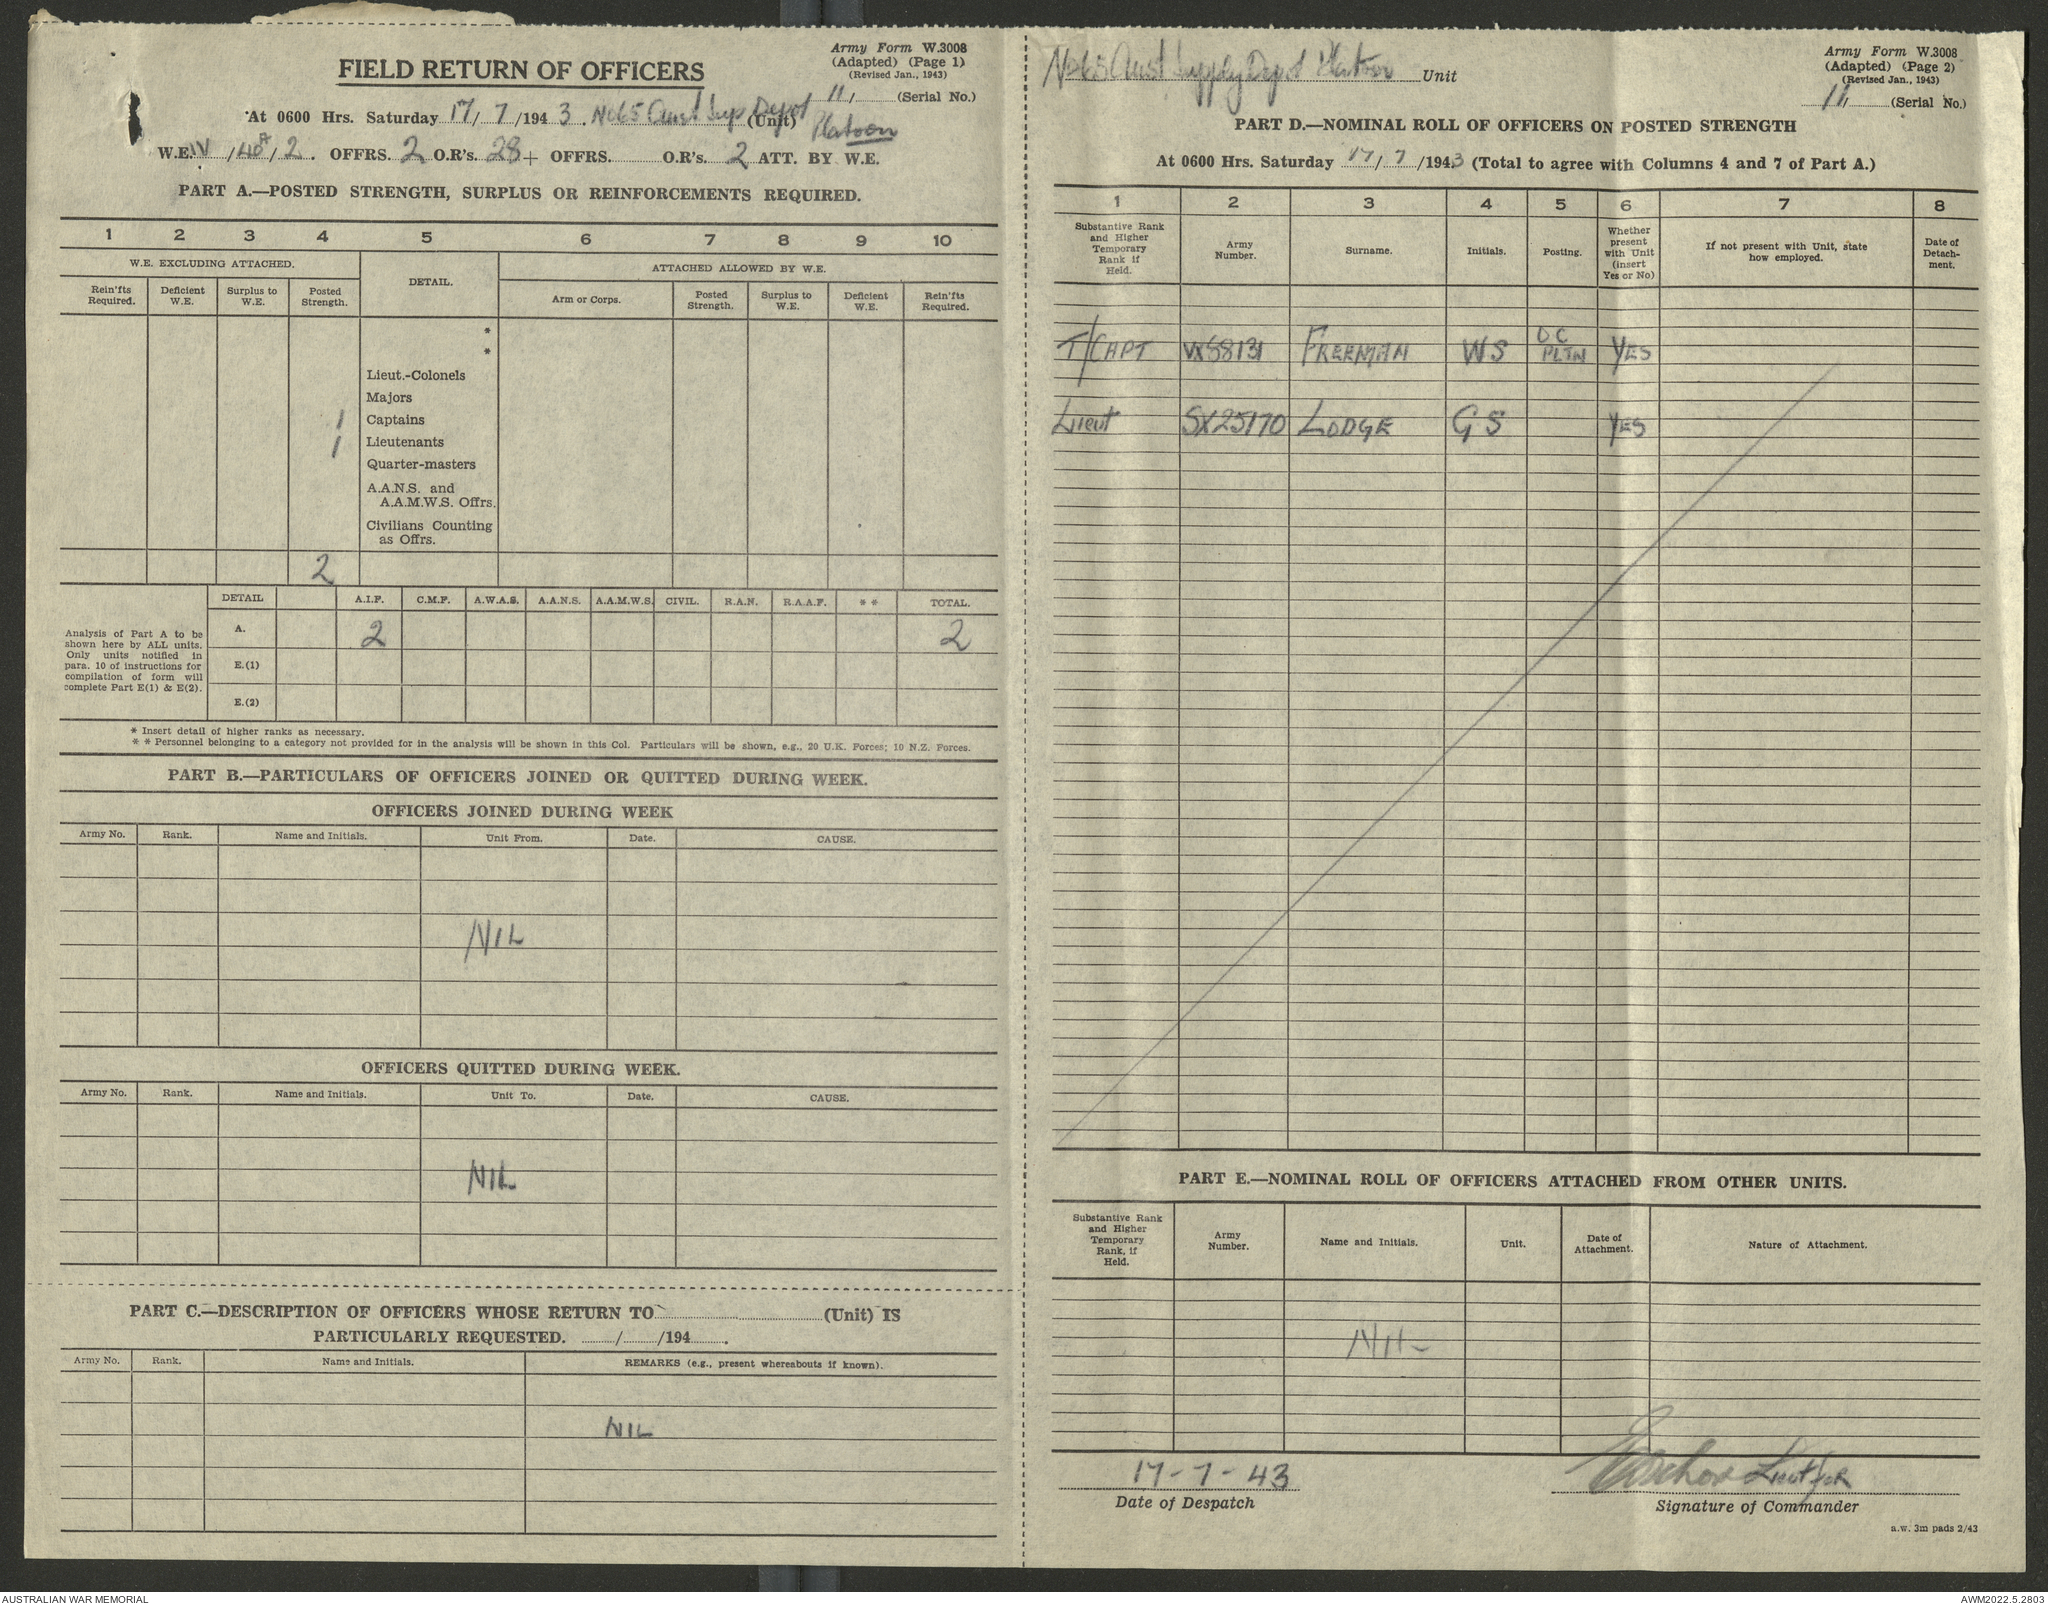 Army Form W.3008
(Adapted) (Page 1)
(Revised Jan., 1943)
FIELD RETURN OF OFFICERS
11/ (Serial No.)
At 0600 Hrs. Saturday 17/7/1943. No 65 Aust Sup Depot (Unit) Platoon
W.E. IV/40A/2. OFFRS. 2 O.R's. 28 + OFFRS. O.R's. 2 ATT. BY W.E.
PART A.—POSTED STRENGTH, SURPLUS OR REINFORCEMENTS REQUIRED.
1 2 3 4 5 6 7 8 9 10
W.E. EXCLUDING ATTACHED. DETAIL. ATTACHED ALLOWED BY W.E.
Rein'fts Required. Deficient W.E. Surplus to W.E. Posted Strength. Arm or Corps. Posted Strength. Surplus to W.E. Deficient W.E. Rein'fts Required.
*
*
Lieut.-Colonels
Majors
1 Captains
1 Lieutenants
Quarter-masters
A.A.N.S. and
A.A.M.W.S. Offrs.
Civilians Counting
as Offrs.
2
Analysis of Part A to be shown here by ALL units. Only units notified in para. 10 of instructions for compilation of form will complete Part E(1) & E(2).
DETAIL A.I.F. C.M.F. A.W.A.S. A.A.N.S. A.A.M.W.S. CIVIL. R.A.N. R.A.A.F. * * TOTAL.
A. 2 2
E.(1)
E.(2)
* Insert detail of higher ranks as necessary.
* * Personnel belonging to a category not provided for in the analysis will be shown in this Col. Particulars will be shown, e.g., 20 U.K. Forces; 10 N.Z. Forces.
PART B.—PARTICULARS OF OFFICERS JOINED OR QUITTED DURING WEEK.
OFFICERS JOINED DURING WEEK
Army No. Rank. Name and Initials. Unit From. Date. CAUSE.
NIL
OFFICERS QUITTED DURING WEEK.
Army No. Rank. Name and Initials. Unit To. Date. CAUSE.
NIL
PART C.—DESCRIPTION OF OFFICERS WHOSE RETURN TO (Unit) IS
PARTICULARLY REQUESTED. / /194 .
Army No. Rank. Name and Initials. REMARKS (e.g., present whereabouts if known).
NIL
No 65 Aust Supply Depot Platoon Unit
Army Form W.3008
(Adapted) (Page 2)
(Revised Jan., 1943)
11/ (Serial No.)
PART D.—NOMINAL ROLL OF OFFICERS ON POSTED STRENGTH
At 0600 Hrs. Saturday 17/7/1943 (Total to agree with Columns 4 and 7 of Part A.)
1 2 3 4 5 6 7 8
Substantive Rank and Higher Temporary Rank if Held. Army Number. Surname. Initials. Posting. Whether present with Unit (insert Yes or No) If not present with Unit, state how employed. Date of Detachment.
T/CAPT VX58131 FREEMAN WS OC PLTN YES
Lieut SX25170 LODGE GS YES
PART E.—NOMINAL ROLL OF OFFICERS ATTACHED FROM OTHER UNITS.
Substantive Rank and Higher Temporary Rank, if Held. Army Number. Name and Initials. Unit. Date of Attachment. Nature of Attachment.
NIL
17-7-43 Lieut for
Date of Despatch Signature of Commander
a.w. 3m pads 2/43
AUSTRALIAN WAR MEMORIAL AWM2022.5.2803